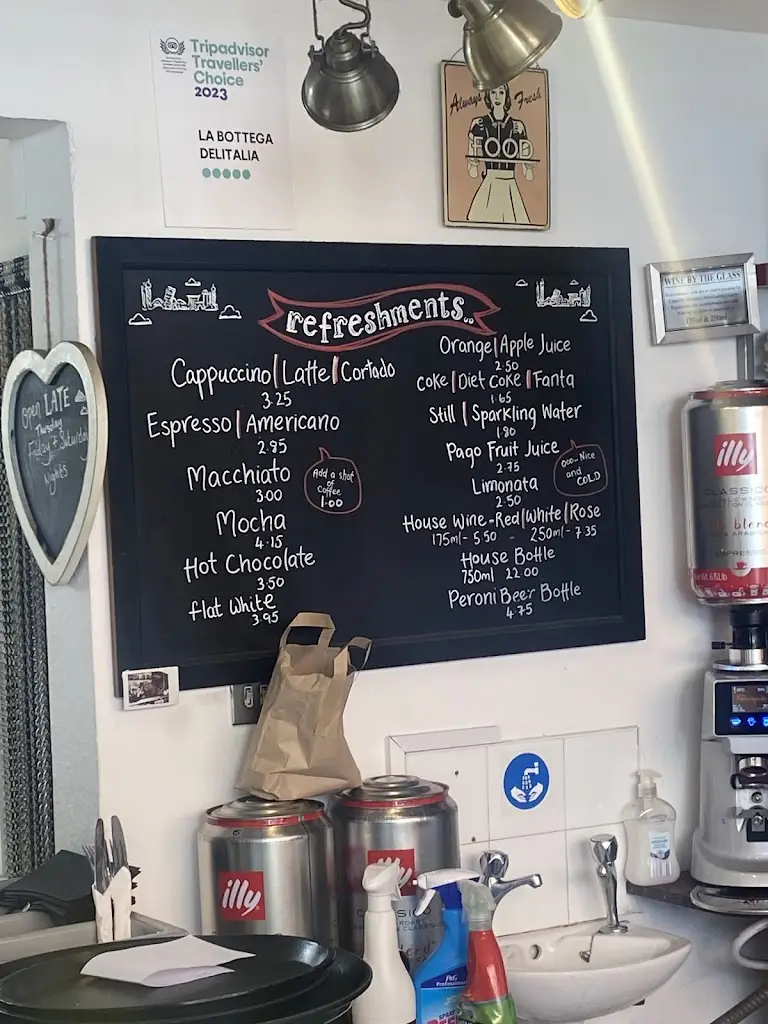 Tripadvisor
Travellers'
Choice
2023
LA BOTTEGA
DELITALIA
Always Fresh
FOOD
refreshments..
Cappuccino|Latte|Cortado
3.25
Espresso|Americano
2.95
Macchiato
3.00
Add a shot
of
Coffee
1.00
Mocha
4.15
Hot Chocolate
3.50
flat White
3.95
Orange|Apple Juice
2.50
Coke|Diet Coke|Fanta
1.65
Still|Sparkling Water
1.80
Pago Fruit Juice
2.75
Limonata
2.50
Ooo.. Nice
and
COLD
House Wine-Red|White|Rose
175ml-5.50 - 250ml-7.35
House Bottle
750ml 22.00
Peroni Beer Bottle
4.75
Open LATE
Thursday
Friday + Saturday
Nights
WINE BY THE GLASS
illy
CLASSICO
blend
ESPRESSO
illy
illy
CLASSICO
P&G
Professional
SPRAY